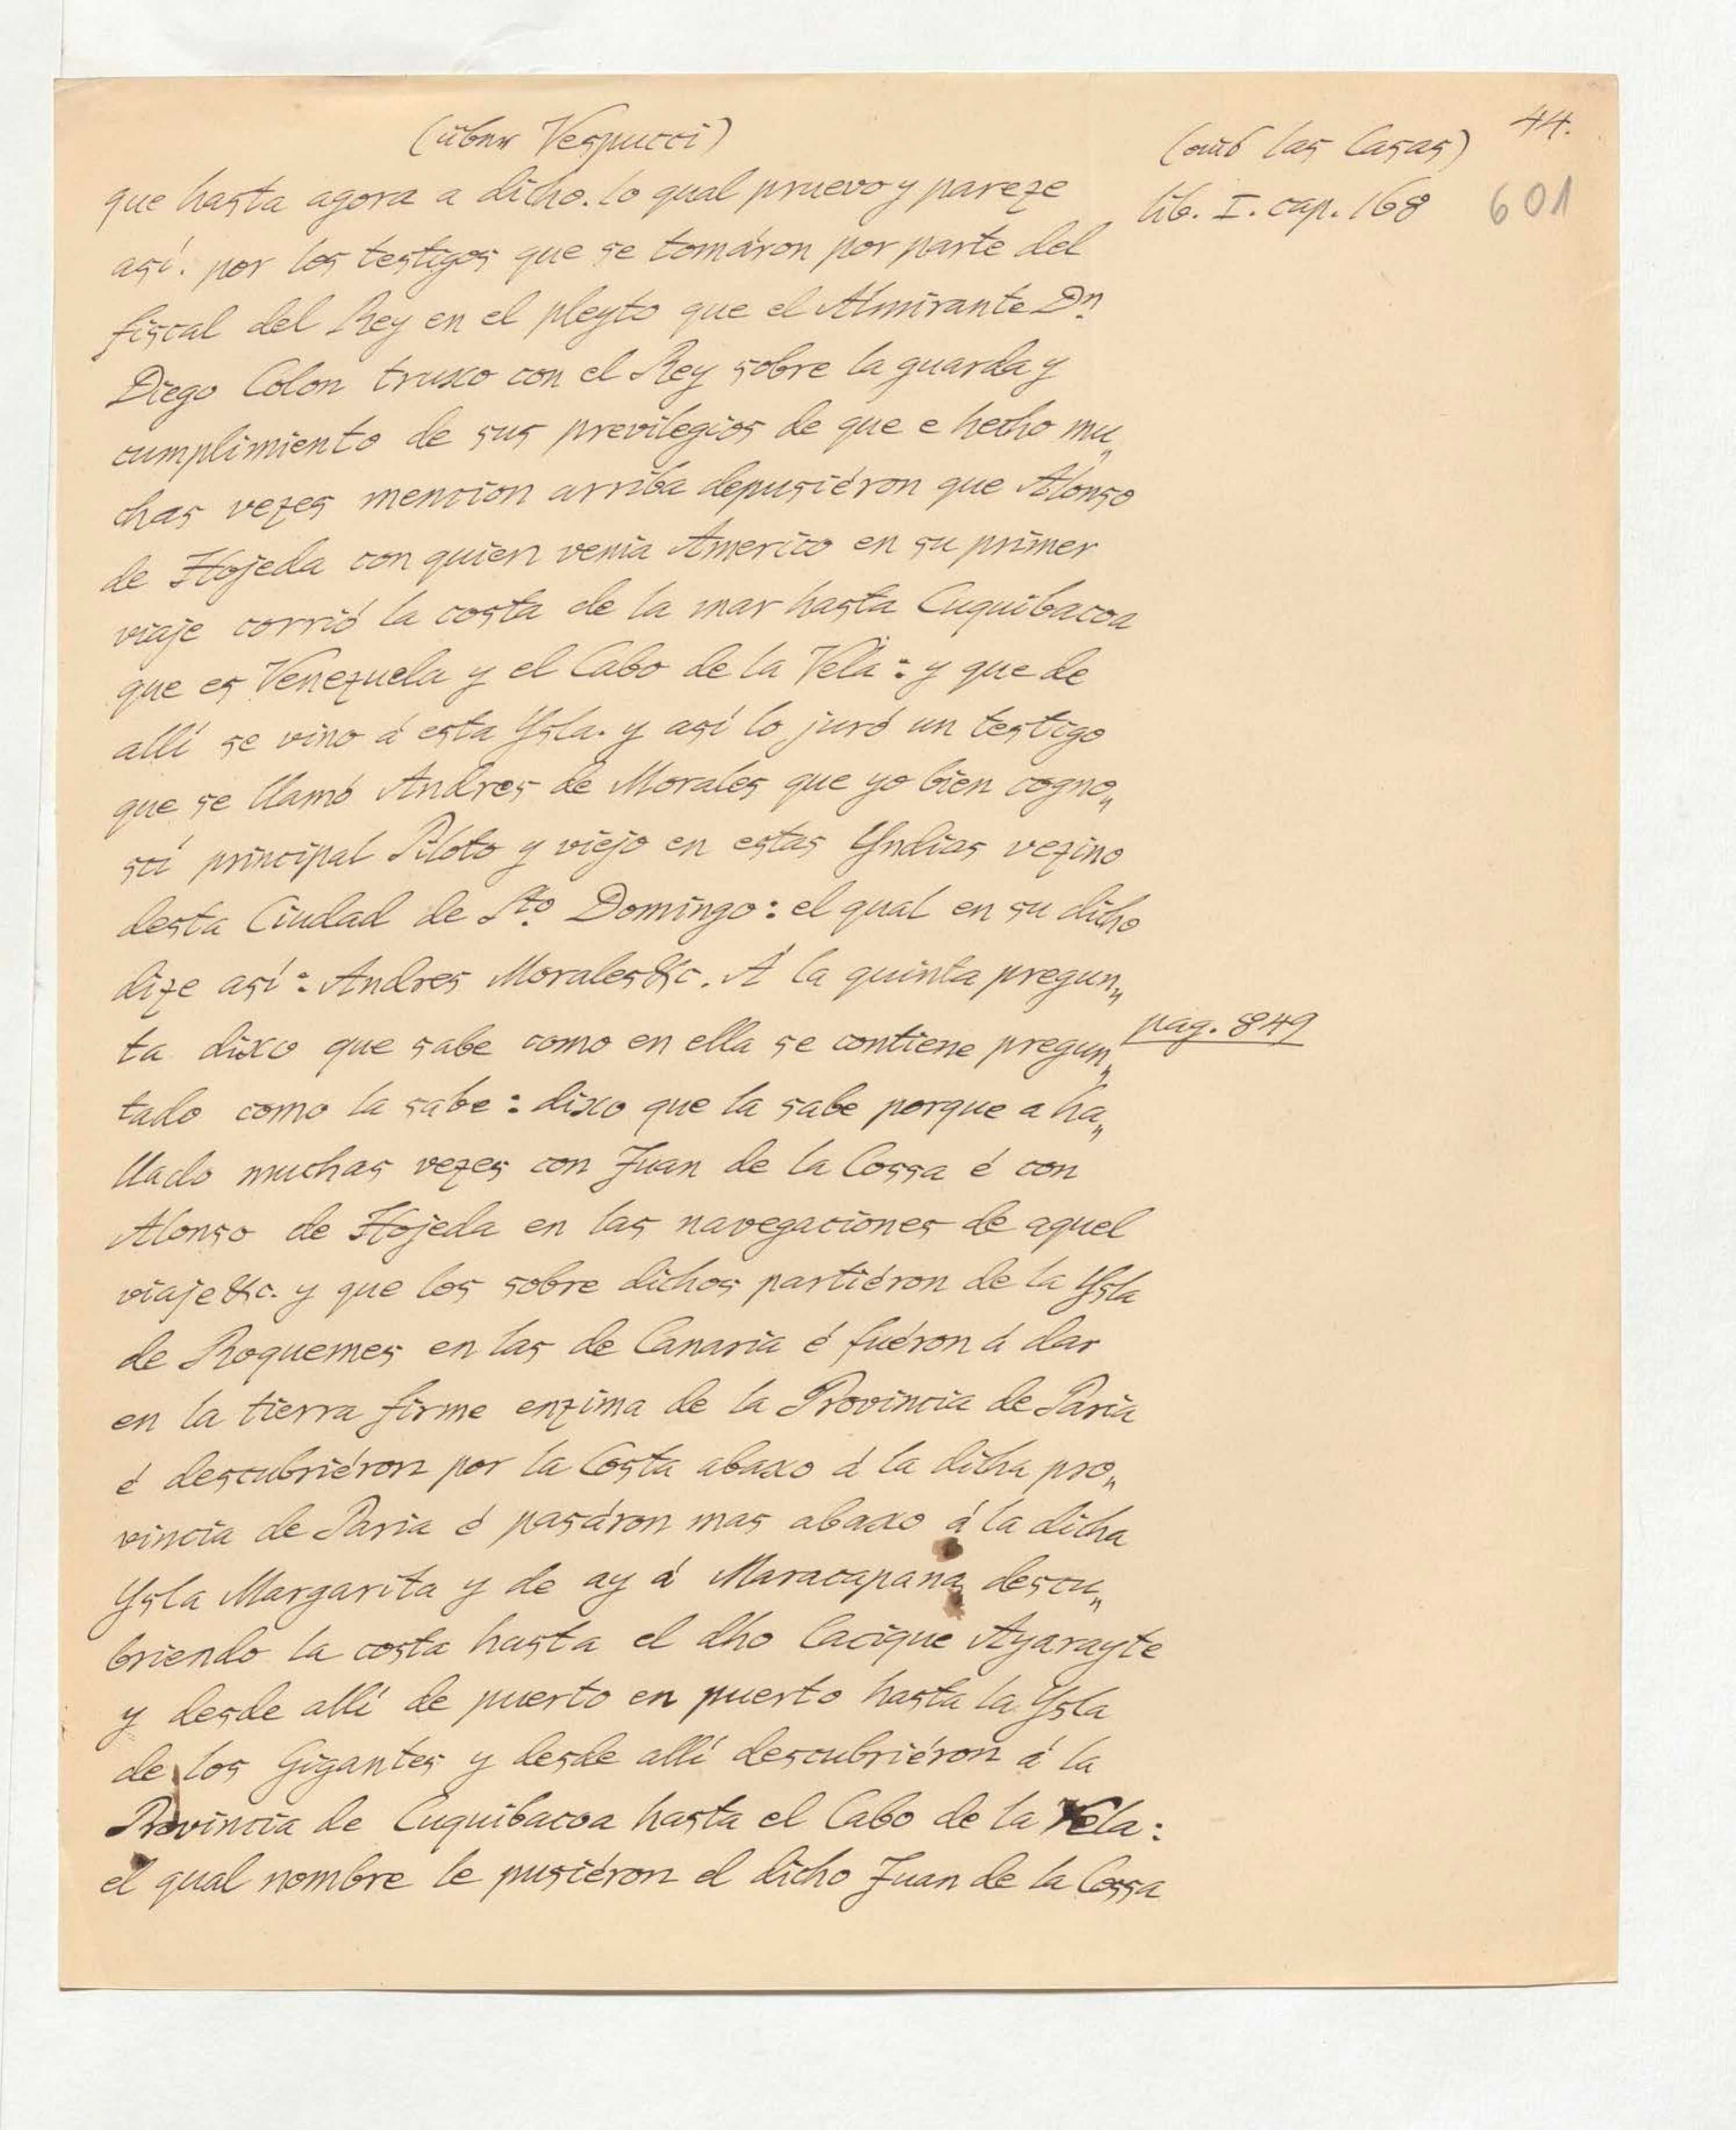 44.
(über Vespucci)
(aus las Casas)
lib. I. cap. 168
601
que hasta agora a dicho. lo qual pruevo y pareze
así. por los testigos que se tomáron por parte del
fiscal del Rey en el pleyto que el Almirante Dn
Diego Colon truxo con el Rey sobre la guarda y
cumplimiento de sus previlegios de que e hecho mu„
chas vezes mencion arriba depusiéron que Alonso
de Hojeda con quien venia Americo en su primer
viaje corrió la costa de la mar hasta Cuquibacoa
que es Venezuela y el Cabo de la Vela: y que de
allí se vino á esta Ysla. y así lo juró un testigo
que se llamó Andres de Morales que yo bien cogno„
scí principal Piloto y viejo en estas Yndias vezino
desta Ciudad de Sto. Domingo: el qual en su dicho
dize así: Andres Morales &c. A la quinta pregun„
ta dixo que sabe como en ella se contiene pregun„
pag. 849
tado como la sabe: dixo que la sabe porque a ha„
llado muchas vezes con Juan de la Cossa é con
Alonso de Hojeda en las navegaciones de aquel
viaje &c. y que los sobre dichos partiéron de la Ysla
de Roquemes en las de Canaria é fuéron á dar
en la tierra firme enzima de la Provincia de Paria
é descubriéron por la Costa abaxo á la dicha pro„
vincia de Paria é pasáron mas abaxo á la dicha
Ysla Margarita y de ay á Maracapana descu„
briendo la costa hasta el dho Cacique Ayarayte
y desde allí de puerto en puerto hasta la Ysla
de los Gigantes y desde allí descubriéron á la
Provincia de Cuquibacoa hasta el Cabo de la Vela:
el qual nombre le pusiéron el dicho Juan de la Cossa